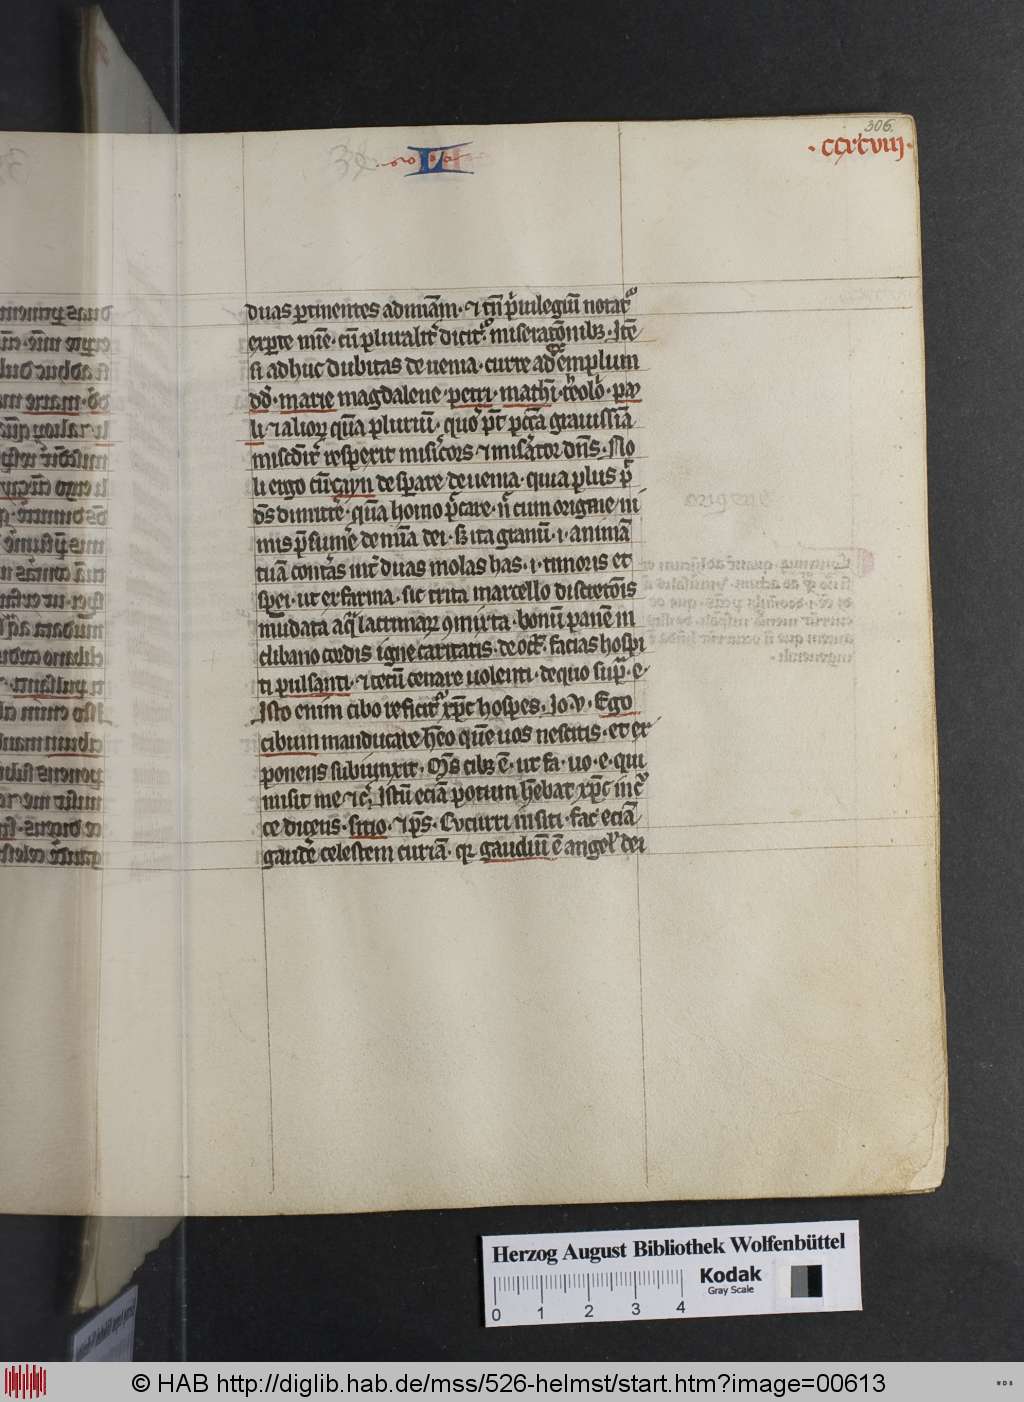 306.
L
· CCXCVIII ·
duas ꝑtinentes ad unā m̄· ⁊ tn̄ p̲uilegiū notatᷣ
ex ꝑte mīe· cū pluralitᷣ dicitᷣ miseratōnibꝫ· Itē
si adhuc dubitas de uenia· curre ad exemplum
dd̓· marie magdalene· petri· mathī· theolo̓· pau
li· ⁊ alioꝝ quā pluriū· quoꝝ p̄t pctā grauissīa
miscditᷣ respexit misicors ⁊ misator dn̄s· No
li ergo cū cayn desperare de uenia· quia plus p̄t
ds̄ dimittē· quā homo pccare· n̄ cum origine ni
mis psumē de mīa dei· sꝫ ita granū· i· animā
tuā contas int̓ duas molas has· i· timoris et
spei· ut ex farina· sic trita marcello discretōis
mūdata aq̄ lacrimaꝝ ꝯmixta· bonū panē in
clibano cordis igne caritatis· decoct· facias hospi
ti pulsanti· ⁊ tecū cenare uolenti· de quo sup̄· e·
Isto enim cibo reficitᷣ xp̄c hospes· Io· v· Ego
cibum manducare heo quē uos nescitis· et ex
ponens subiunxit· Ms̄ cibꝫ ē· ut fa· uo· e· qui
misit me ⁊c̄· Istū eciā potum hēbat xp̄c in cᷣ
ce dicens· sitio· ⁊ ps̄· Cucurri in siti· fac eciā
gaudē celestem curiā· qꝛ gaudiū ē angel̓ dei
Herzog August Bibliothek Wolfenbüttel
0 1 2 3 4
Kodak
Gray Scale
© HAB http://diglib.hab.de/mss/526-helmst/start.htm?image=00613